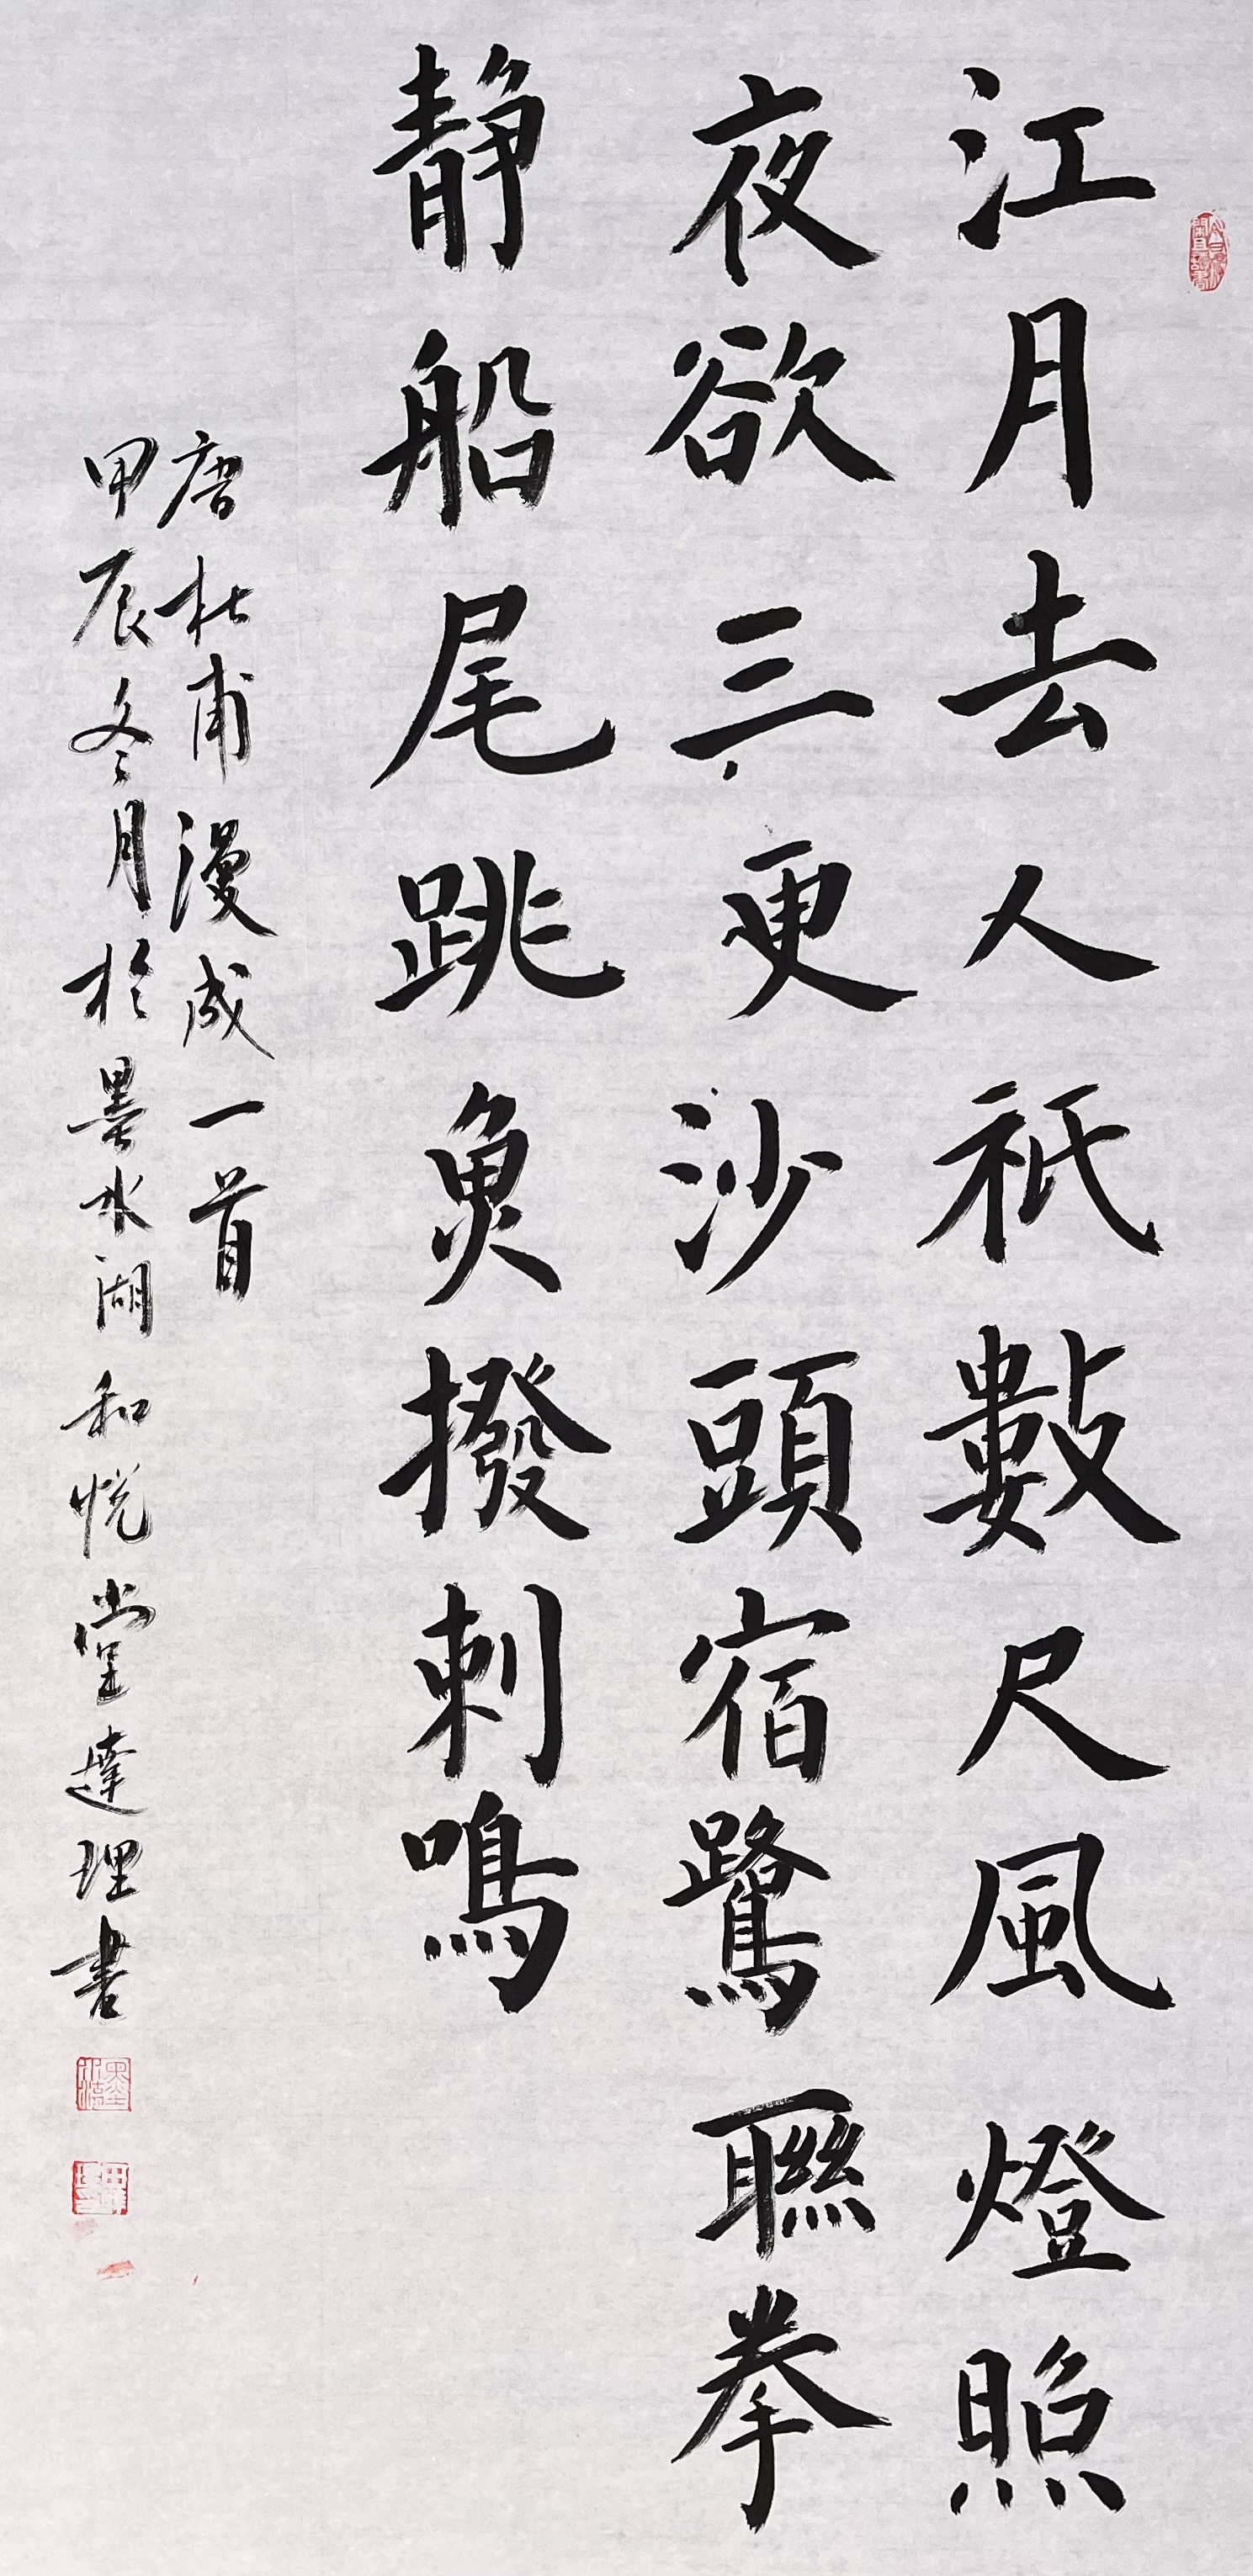 江月去人祇數尺風燈照
夜欲三更沙頭宿鷺聯拳
静船尾跳魚撥刺鳴
唐杜甫漫成一首
甲辰冬月於墨水湖和悦堂達理書